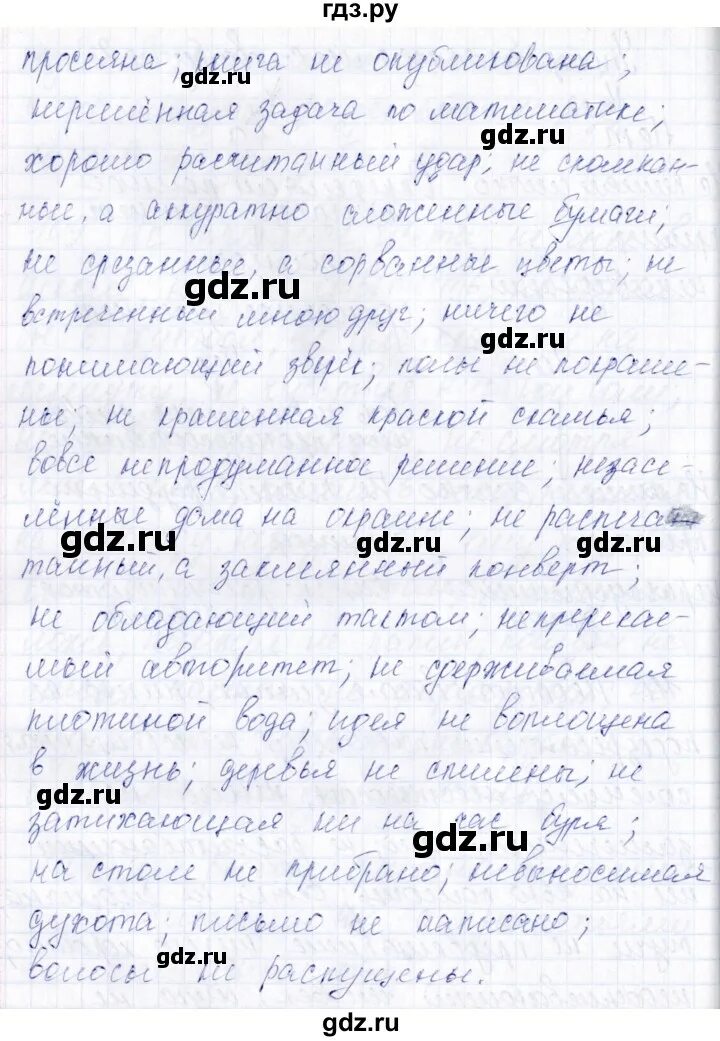 гдз.ру
просеяна; книга не опубликована;
gdz.ru
gdz.ru
нерешённая задача по математике;
gdz.ru
хорошо расчитанный удар; не скомкан-
ные, а аккуратно сложенные бумаги;
gdz.ru
не срезанные, а сорванные цветы; не
gdz.ru
встреченный мною друг; ничего не
gdz.ru
понимающий зверёк; полы не покраше-
ны; не крашенная краской скамья;
gdz.ru
вовсе непродуманное решение; незасе-
лённые дома на окраине; не распеча
gdz.ru
gdz.ru
gdz.ru
танный, а заклеянный конверт;
не обладающий тактом; непререкае-
gdz.ru
gdz.ru
мый авторитет; не сдерживаемая
плотиной вода; идея не воплощена
gdz.ru
в жизнь; деревья не спилены; не
gdz.ru
затихающая ни на час буря;
gdz.ru
на столе не прибрано; невыносимая
gdz.ru
духота; письмо не написано;
gdz.ru
волосы не распущены.
gdz.ru
gdz.ru